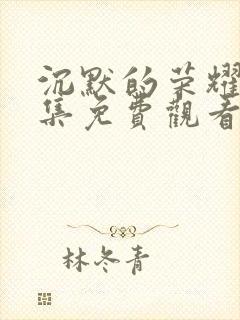 沉默的荣耀
集免費觀看
林冬青